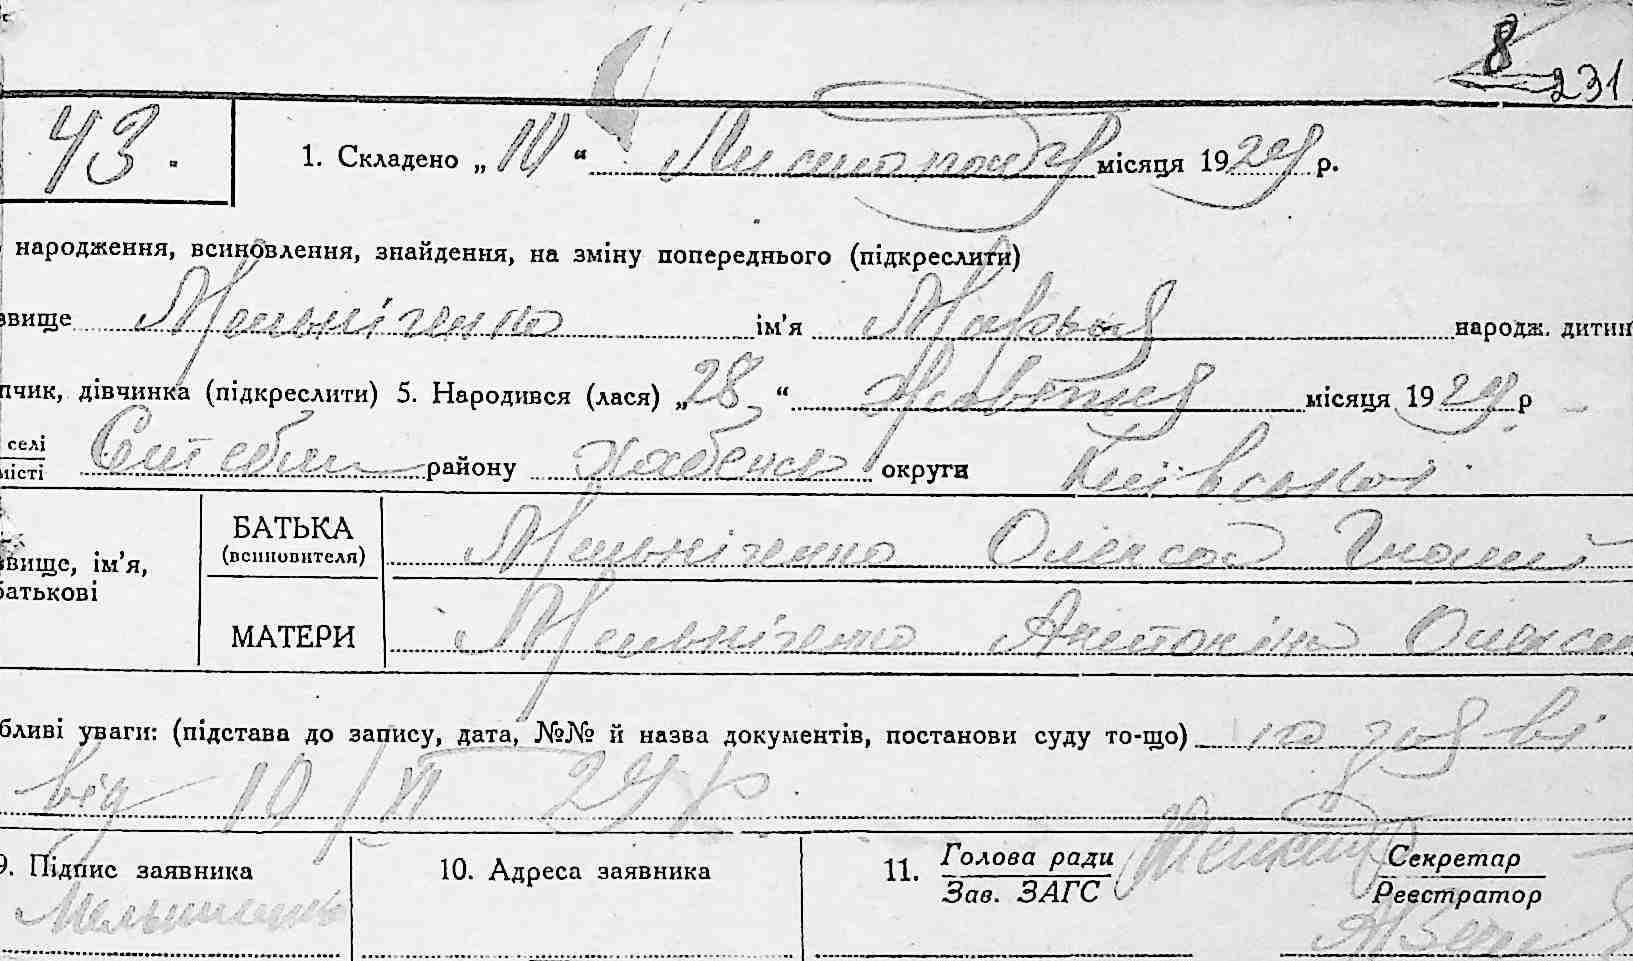 8
231
43.
1. Складено „10“ Листопада місяця 1929 р.
народження, всиновлення, знайдення, на зміну попереднього (підкреслити)
звище Мельніченко ім’я Марья народж. дитин
пчик, дівчинка (підкреслити) 5. Народився (лася) „28“ Жовтня місяця 1929 р
селі
місті
району Хабенськ округи Київської
БАТЬКА
(всиновителя)
Мельніченко Олексай Гнатий
звище, ім’я,
батькові
МАТЕРИ Мельніченко Антоніна Олексе
бливі уваги: (підстава до запису, дата, №№ й назва документів, постанови суду то-що) по заяві
від 10/XI 29 р.
9. Підпис заявника
10. Адреса заявника
11. Голова ради
Зав. ЗАГС
Секретар
Реєстратор